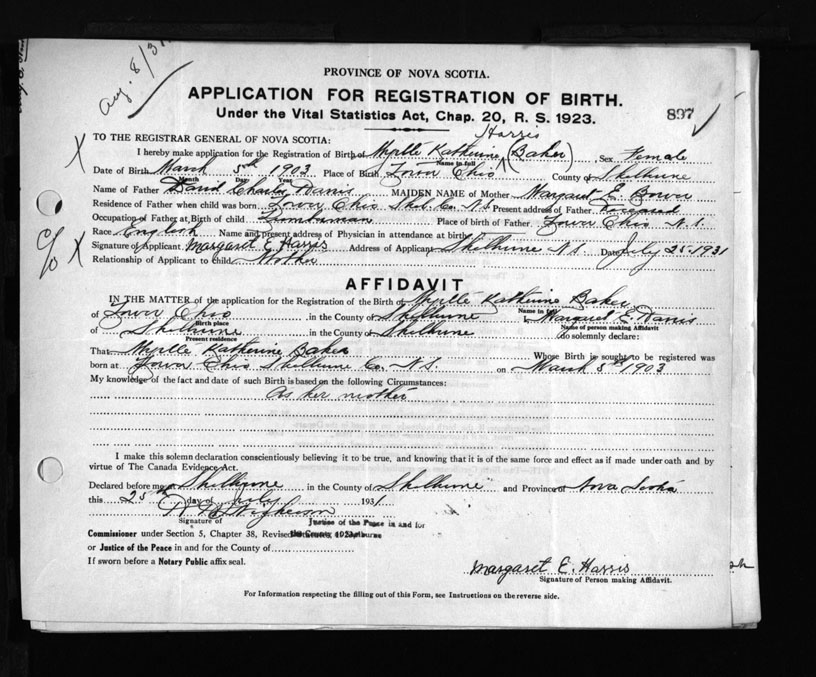 Aug. 8/31
PROVINCE OF NOVA SCOTIA.
APPLICATION FOR REGISTRATION OF BIRTH.
Under the Vital Statistics Act, Chap. 20, R. S. 1923.
897
TO THE REGISTRAR GENERAL OF NOVA SCOTIA:
Harris
I hereby make application for the Registration of Birth of Myrtle Katherine (Baker) Sex Female
Name in full
Date of Birth March 5th 1903 Place of Birth Lower Ohio County of Shelburne
Month Day Year
Name of Father David Charles Harris MAIDEN NAME of Mother Margaret E. Bower
Residence of Father when child was born Lower Ohio Shel. Co. N.S. Present address of Father Deceased
Occupation of Father at Birth of child Lumberman Place of birth of Father Lower Ohio N.S.
Race English Name and present address of Physician in attendance at birth
Signature of Applicant Margaret E Harris Address of Applicant Shelburne N.S. Date July 25-1931
Relationship of Applicant to Child Mother
AFFIDAVIT
IN THE MATTER of the application for the Registration of the Birth of Myrtle Katherine Baker
Name in full
of Lower Ohio in the County of Shelburne I, Margaret E. Harris
Birth place Name of person making Affidavit
of Shelburne in the County of Shelburne do solemnly declare:
Present residence
That Myrtle Katherine Baker Whose Birth is sought to be registered was
born at Lower Ohio Shelburne Co. N.S. on March 5th 1903
My knowledge of the fact and date of such Birth is based on the following Circumstances:
As her mother
I make this solemn declaration conscientiously believing it to be true, and knowing that it is of the same force and effect as if made under oath and by
virtue of The Canada Evidence Act.
Declared before me at Shelburne in the County of Shelburne and Province of Nova Scotia
this 25th day of July 1931
Signature of Justice of the Peace in and for
Commissioner under Section 5, Chapter 38, Revised
or Justice of the Peace in and for the County of
If sworn before a Notary Public affix seal.
Margaret E. Harris
Signature of Person making Affidavit.
For Information respecting the filling out of this Form, see Instructions on the reverse side.